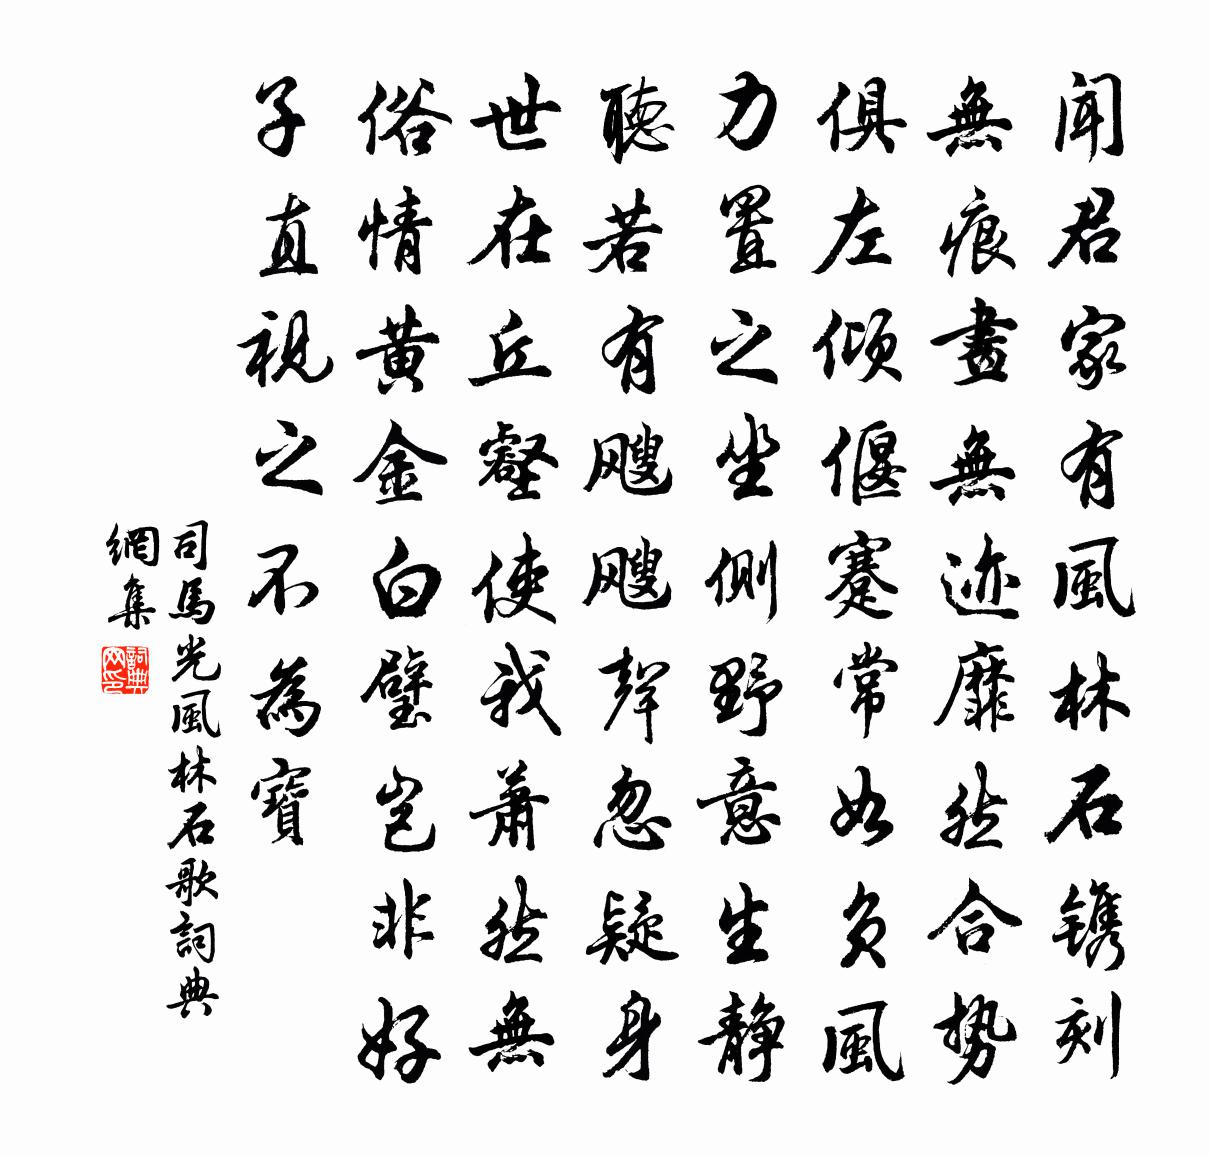 聞君家有風林石镌刻
無痕畫無迹靡然合势
俱左倾偃蹇常如负風
力置之坐側野意生静
聴若有飕飕聲忽疑身
世在丘壑使我萧然無
俗情黄金白璧岂非好
子直視之不為寶
司馬光風林石歌詞典
網集
詞典网印